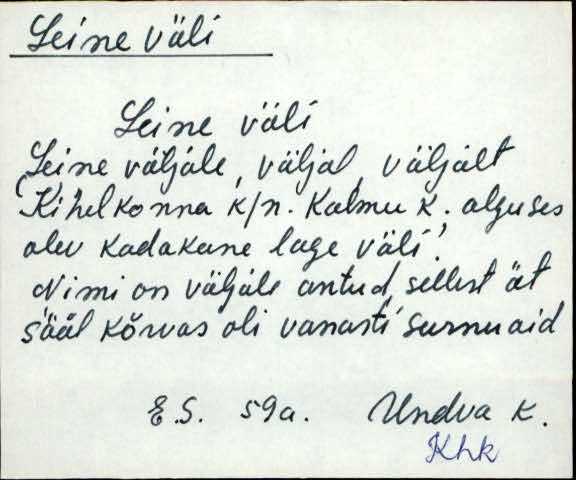 Leine väli
Leine väli
Leine väljale, väljal, väljalt
(Kihelkonna k/n. Kalmu k. alguses
olev kadakane lage väli.
Nimi on väljale antud sellest ät
sääl kõrvas oli vanasti surnuaid
E.S. 59a. Undva k.
Khk